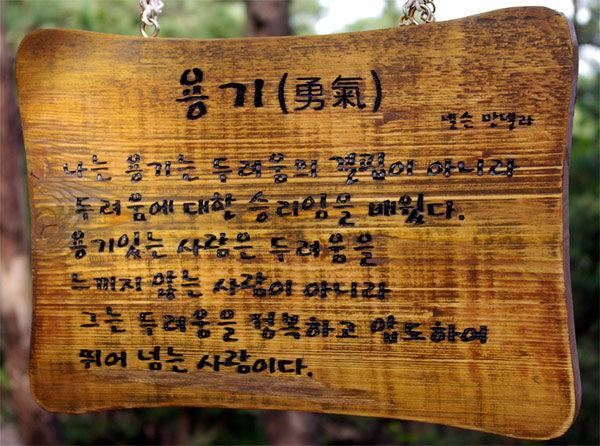 용기(勇氣)
넬슨 만델라
나는 용기는 두려움의 결핍이 아니라
두려움에 대한 승리임을 배웠다.
용기있는 사람은 두려움을
느끼지 않는 사람이 아니라
그는 두려움을 정복하고 압도하여
뛰어 넘는 사람이다.